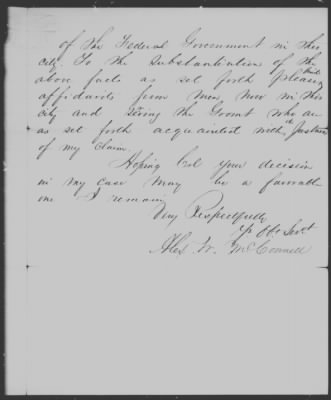 of the Federal Government in this
city. To the substantiation of the
above facts as set forth please
affidavits from men now in this
city and serving the Govmt who are
as set forth acquainted with the Justice
of my claim.
Hoping that your decision
in my case may be a favorable
one I remain
Very Respectfully
Yr Obt Servt
Alex. W. McConnell